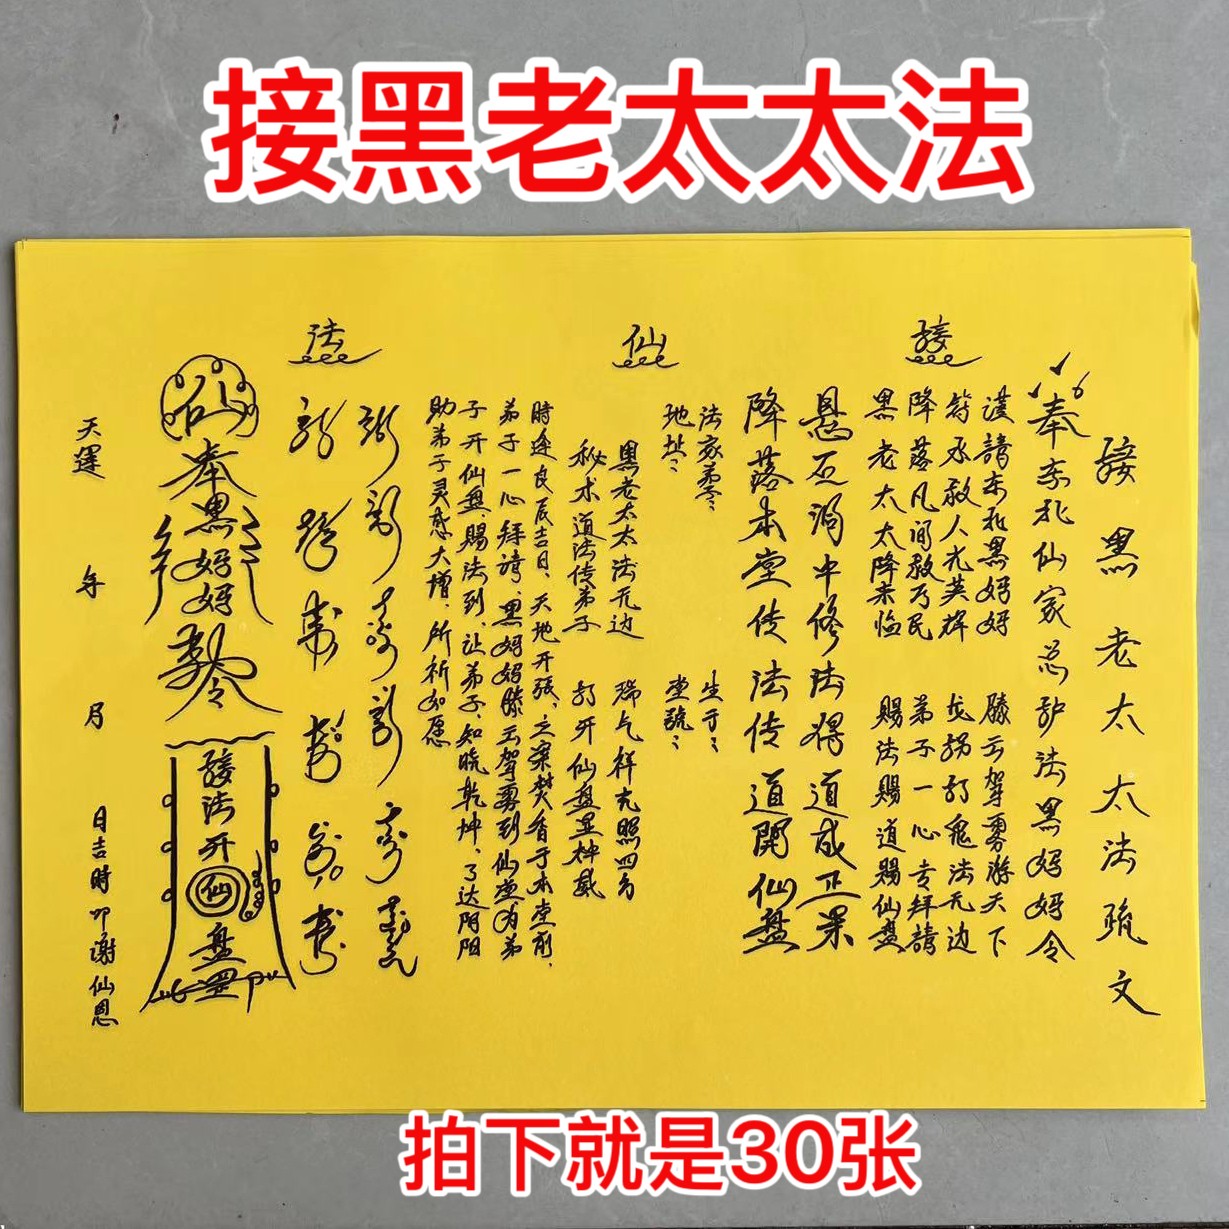 接黑老太太法
接仙法
接黑老太太法疏文
奉东北仙家总护法黑妈妈令
谨請东北黑妈妈 腾云驾雾游天下
符承救人尤英雄 龙拐打鬼法无边
降落凡间救万民 弟子一心专拜請
黑老太太降来临 赐法赐道赐仙盘
悬石洞中修法得道成正果
降落本堂传法传道開仙盘
法家弟子: 生于:
地址: 堂號:
黑老太太法无边 瑞气祥光照四方
秘术道法传弟子 打开仙盘显神威
時逢良辰吉日、天地开张、之案焚香于本堂前、
弟子一心拜请、黑妈妈腾云驾雾到仙堂为弟
子开仙盘赐法到、让弟子、知晓乾坤、了达阴阳
助弟子灵感大增、所祈如愿
仙
奉黑妈妈
令
接法开仙盘罡
天運 年 月 日吉時叩谢仙恩
拍下就是30张